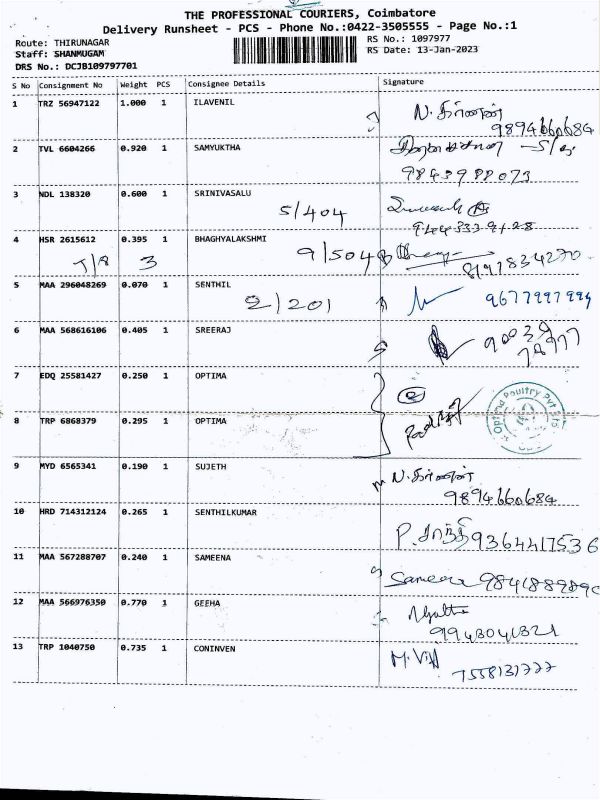 THE PROFESSIONAL COURIERS, Coimbatore
Delivery Runsheet - PCS - Phone No.:0422-3505555 - Page No.:1
Route: THIRUNAGAR
RS No.: 1097977
Staff: SHANMUGAM
RS Date: 13-Jan-2023
DRS No.: DCJB109797701
S No Consignment No Weight PCS Consignee Details Signature
1 TRZ 56947122 1.000 1 ILAVENIL
9894660684
2 TVL 6604266 0.920 1 SAMYUKTHA
3 NDL 138320 0.600 1 SRINIVASALU
S/404
4 HSR 2615612 0.395 1 BHAGHYALAKSHMI
9/504
8197834270
5 MAA 296048269 0.070 1 SENTHIL
2/201 9677997994
6 MAA 568616106 0.405 1 SREERAJ
7 EDQ 25581427 0.250 1 OPTIMA
8 TRP 6868379 0.295 1 OPTIMA
Optima Poultry Pvt Ltd
9 MYD 6565341 0.190 1 SUJETH
9894660684
10 HRD 714312124 0.265 1 SENTHILKUMAR
P. சாந்தி 9364417536
11 MAA 567288707 0.240 1 SAMEENA
Sameera
12 MAA 566976350 0.770 1 GEEHA
9943041321
13 TRP 1040750 0.735 1 CONINVEN
7558131777